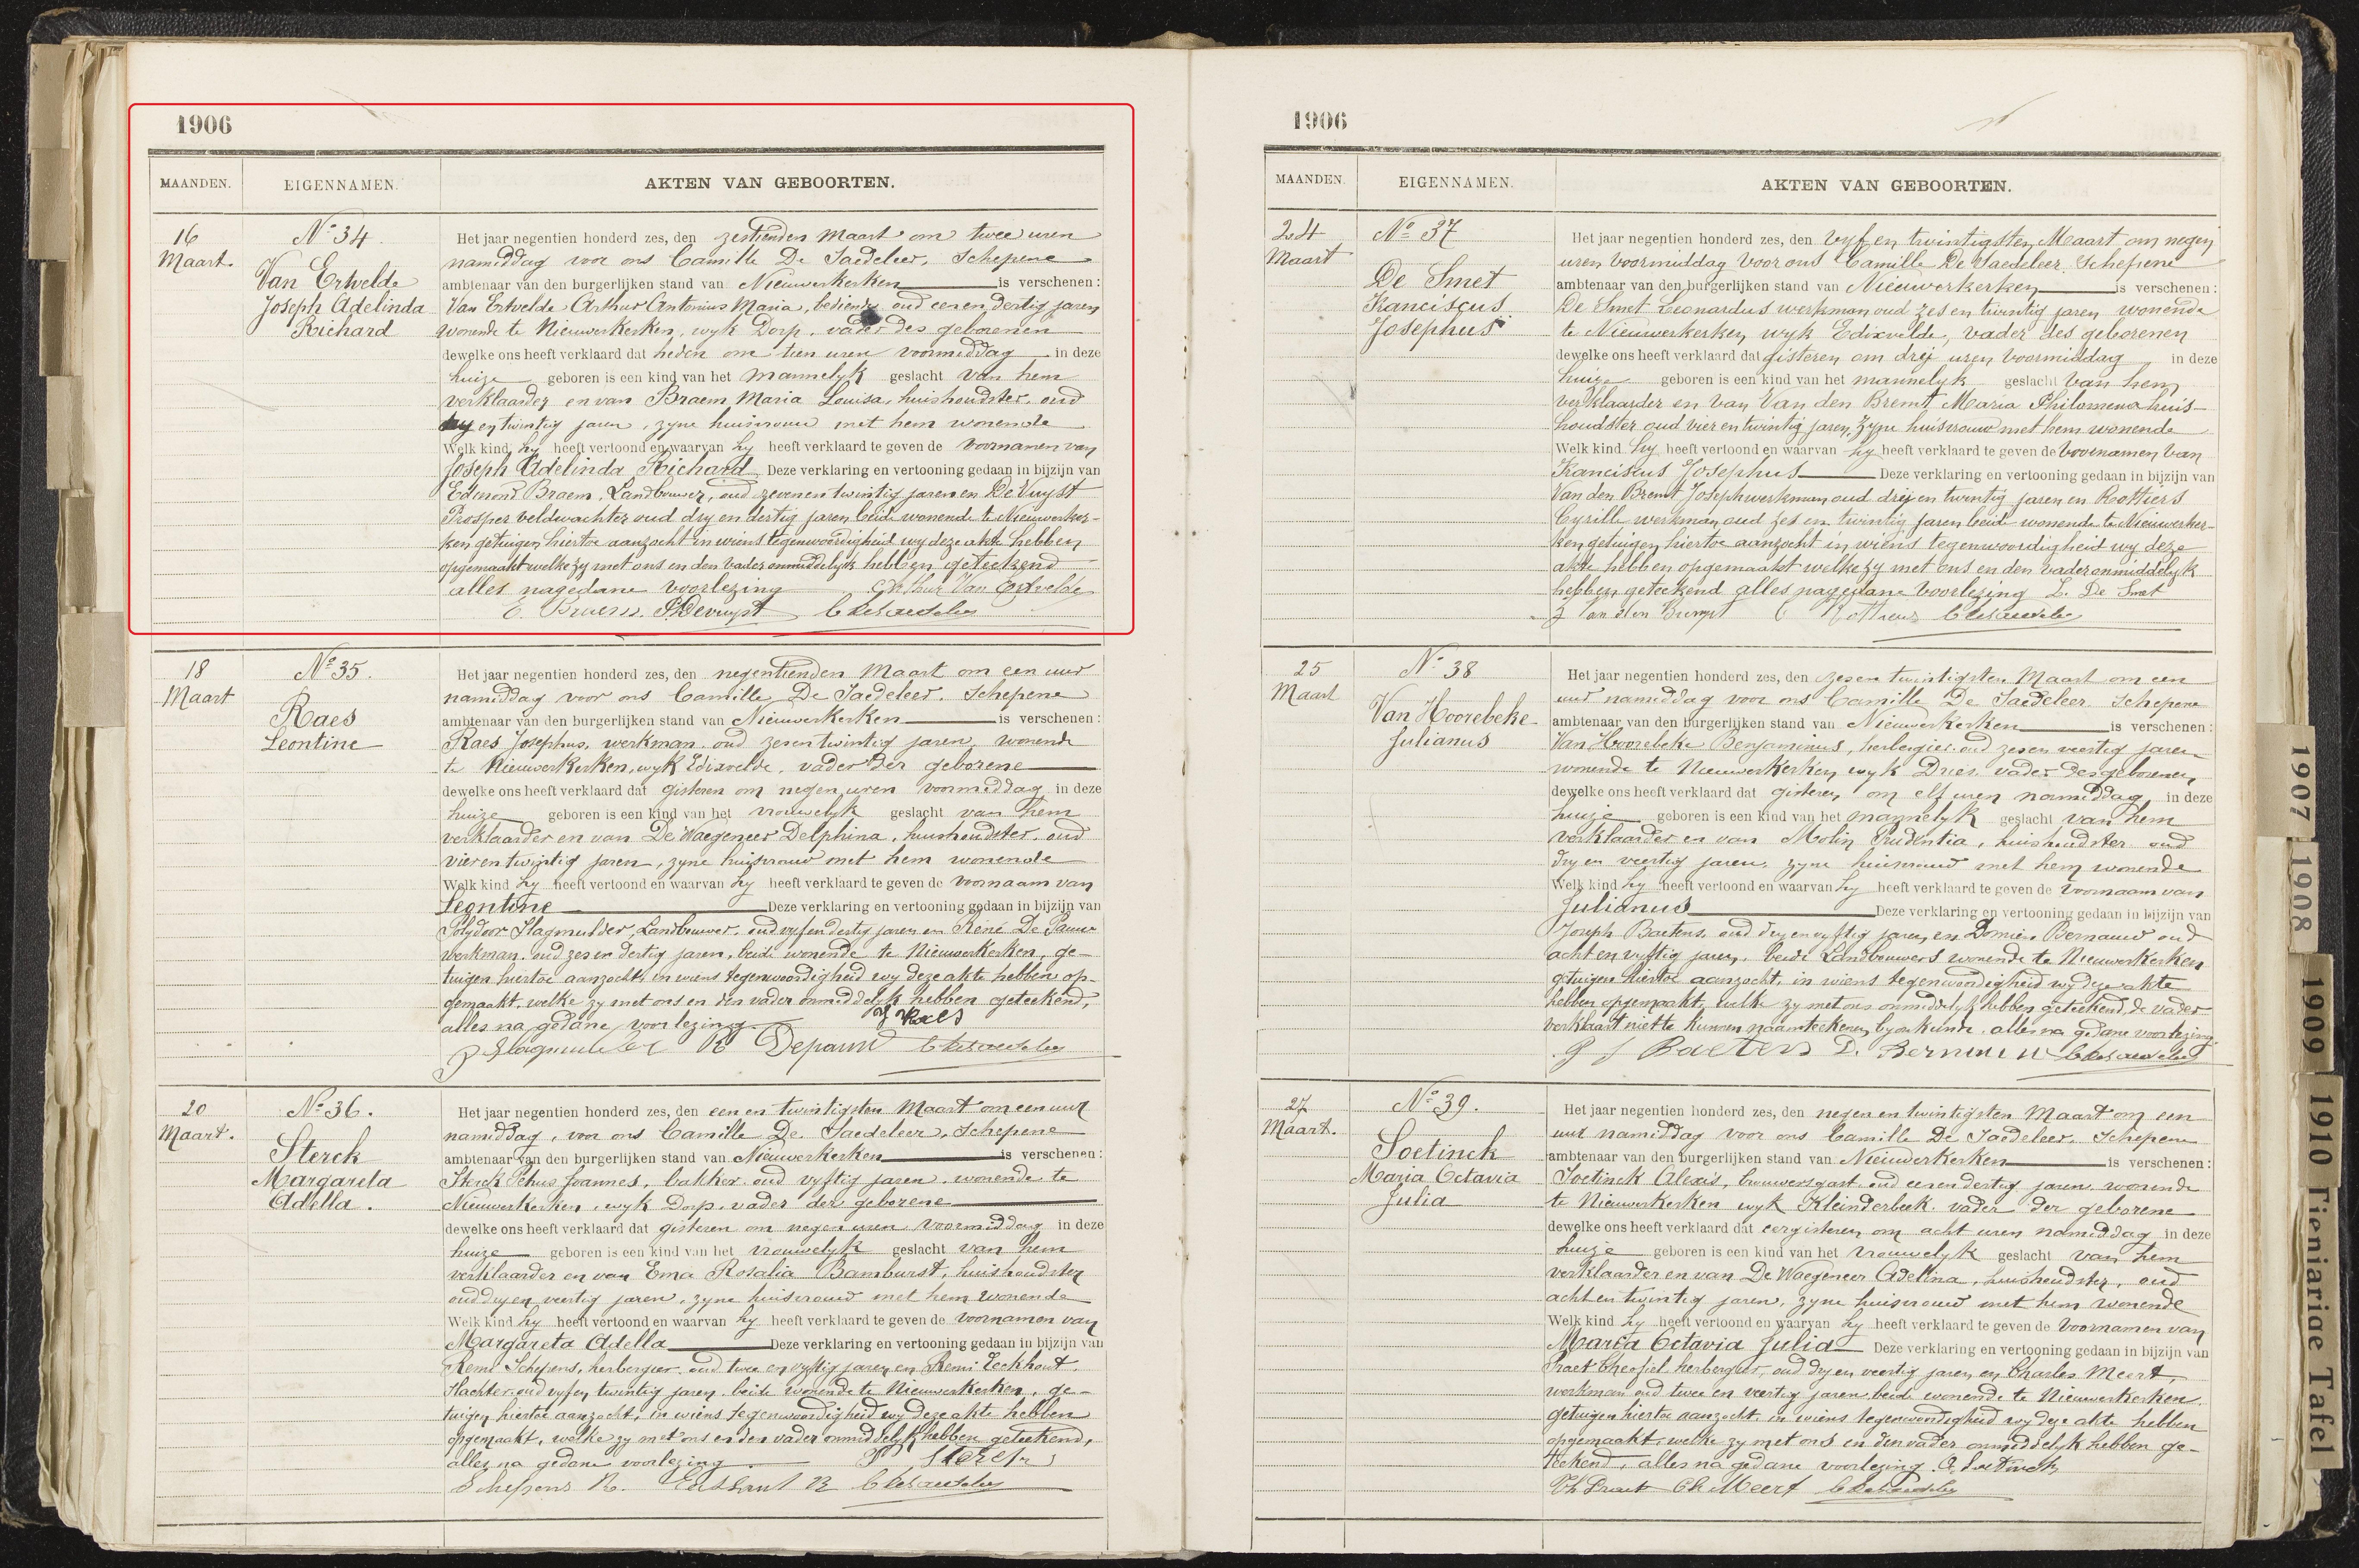 1906
MAANDEN. EIGENNAMEN. AKTEN VAN GEBOORTEN.
16 Maart.
N° 34.
Van Ertvelde
Joseph Adelinda
Richard
Het jaar negentien honderd zes, den zestienden Maart om twee uren
namiddag voor ons Camille De Saedeleer, Schepene
ambtenaar van den burgerlijken stand van Nieuwerkerken is verschenen:
Van Ertvelde Arthur Antonius Maria, bediende oud een en dertig jaren
wonende te Nieuwerkerken, wyk Dorp, vader des geborenen
dewelke ons heeft verklaard dat heden om tien uren voormiddag in deze
huize geboren is een kind van het mannelyk geslacht van hem
verklaarder en van Braem Maria Louisa, huishoudster, oud
en twintig jaren, zyne huisvrouw met hem wonende
Welk kind hy heeft vertoond en waarvan hy heeft verklaard te geven de voornamen van
Joseph Adelinda Richard Deze verklaring en vertooning gedaan in bijzijn van
Edmond Braem, Landbouwer, oud zeven en twintig jaren en De Vuyst
Prosper veldwachter oud dry en dertig jaren beide wonende te Nieuwerker-
ken getuigen hiertoe aanzocht in wiens tegenwoordigheid wy deze akte hebben
opgemaakt welke zy met ons en den vader onmiddelyk hebben geteekend
alles na gedane voorlezing Arthur Van Ertvelde
E. Braem P. Devuyst C De Saedeleer
18 Maart
N° 35.
Raes
Leontine
Het jaar negentien honderd zes, den negentienden Maart om een uur
namiddag voor ons Camille De Saedeleer, Schepene
ambtenaar van den burgerlijken stand van Nieuwerkerken is verschenen:
Raes Josephus, werkman oud zes en twintig jaren, wonende
te Nieuwerkerken, wyk Edixvelde, vader der geborene
dewelke ons heeft verklaard dat gisteren om negen uren voormiddag in deze
huize geboren is een kind van het vrouwelyk geslacht van hem
verklaarder en van De Waegeneer Delphina, huishoudster, oud
vier en twintig jaren, zyne huisvrouw met hem wonende
Welk kind hy heeft vertoond en waarvan hy heeft verklaard te geven de voornaam van
Leontine Deze verklaring en vertooning gedaan in bijzijn van
Polydoor Slagmulder, Landbouwer, oud vyf en dertig jaren en René De Pauw
werkman, oud zes en dertig jaren, beide wonende te Nieuwerkerken, ge-
tuigen hiertoe aanzocht, in wiens tegenwoordigheid wy deze akte hebben op-
gemaakt, welke zy met ons en den vader onmiddelyk hebben geteekend,
alles na gedane voorlezing. J Raes
P Slagmulder R Depauw C De Saedeleer
20 Maart.
N° 36.
Sterck
Margareta
Adella.
Het jaar negentien honderd zes, den een en twintigsten Maart om een uur
namiddag, voor ons Camille De Saedeleer, Schepene
ambtenaar van den burgerlijken stand van Nieuwerkerken is verschenen:
Sterck Petrus Joannes, bakker oud vyftig jaren, wonende te
Nieuwerkerken, wyk Dorp, vader der geborene
dewelke ons heeft verklaard dat gisteren om negen uren voormiddag in deze
huize geboren is een kind van het vrouwelyk geslacht van hem
verklaarder en van Ema Rosalia Bamburst, huishoudster
oud dry en veertig jaren, zyne huisvrouw met hem wonende
Welk kind hy heeft vertoond en waarvan hy heeft verklaard te geven de voornamen van
Margareta Adella Deze verklaring en vertooning gedaan in bijzijn van
Remi Schepens, herbergier, oud twee en vyftig jaren en Remi Eeckhout,
slachter oud vyf en twintig jaren, beide wonende te Nieuwerkerken, ge-
tuigen hiertoe aanzocht, in wiens tegenwoordigheid wy deze akte hebben
opgemaakt, welke zy met ons en den vader onmiddelyk hebben geteekend,
alles na gedane voorlezing. P Sterck
Schepens R. Eeckhout R C De Saedeleer
1906
MAANDEN. EIGENNAMEN. AKTEN VAN GEBOORTEN.
24 Maart
N° 37
De Smet
Franciscus
Josephus
Het jaar negentien honderd zes, den vyf en twintigsten Maart om negen
uren voormiddag voor ons Camille De Saedeleer, Schepene
ambtenaar van den burgerlijken stand van Nieuwerkerken is verschenen:
De Smet Leonardus werkman oud zes en twintig jaren wonende
te Nieuwerkerken wyk Edixvelde, vader des geborenen
dewelke ons heeft verklaard dat gisteren om drij uren voormiddag in deze
huize geboren is een kind van het mannelyk geslacht van hem
verklaarder en van Van den Bremt Maria Philomena huis-
houdster oud vier en twintig jaren, zyne huisvrouw met hem wonende
Welk kind hy heeft vertoond en waarvan hy heeft verklaard te geven de voornamen van
Franciscus Josephus Deze verklaring en vertooning gedaan in bijzijn van
Van den Bremt Joseph werkman oud drij en twintig jaren en Rottiers
Cyrille werkman oud zes en twintig jaren beide wonende te Nieuwerker-
ken getuigen hiertoe aanzocht in wiens tegenwoordigheid wy deze
akte hebben opgemaakt welke zy met ons en den vader onmiddelyk
hebben geteekend alles na gedane voorlezing L. De Smet
J Van den Bremt C Rottiers C De Saedeleer
25 Maart
N° 38
Van Hoorebeke
Julianus
Het jaar negentien honderd zes, den zes en twintigsten Maart om een
uur namiddag voor ons Camille De Saedeleer, Schepene
ambtenaar van den burgerlijken stand van Nieuwerkerken is verschenen:
Van Hoorebeke Benjaminus, herbergier oud zes en veertig jaren
wonende te Nieuwerkerken wyk Dries, vader des geborenen
dewelke ons heeft verklaard dat gisteren om elf uren namiddag in deze
huize geboren is een kind van het mannelyk geslacht van hem
verklaarder en van Molin Prudentia, huishoudster oud
dry en veertig jaren, zyne huisvrouw met hem wonende
Welk kind hy heeft vertoond en waarvan hy heeft verklaard te geven de voornaam van
Julianus Deze verklaring en vertooning gedaan in bijzijn van
Joseph Baetens, oud dry en vyftig jaren, en Domien Bernauw oud
acht en vyftig jaren, beide Landbouwers wonende te Nieuwerkerken
getuigen hiertoe aanzocht, in wiens tegenwoordigheid wy deze akte
hebben opgemaakt, welke zy met ons onmiddelyk hebben geteekend, de vader
verklaart niet te kunnen naamteekenen by onkunde, alles na gedane voorlezing.
J Baetens D. Bernauw C De Saedeleer
27 Maart.
N° 39.
Soetinck
Maria Octavia
Julia
Het jaar negentien honderd zes, den negen en twintigsten Maart om een
uur namiddag voor ons Camille De Saedeleer, Schepene
ambtenaar van den burgerlijken stand van Nieuwerkerken is verschenen:
Soetinck Alexis, brouwersgast oud een en dertig jaren, wonende
te Nieuwerkerken wyk Kleinderbeek, vader der geborene
dewelke ons heeft verklaard dat eergisteren om acht uren namiddag in deze
huize geboren is een kind van het vrouwelyk geslacht van hem
verklaarder en van De Waegeneer Adelina, huishoudster, oud
acht en twintig jaren, zyne huisvrouw met hem wonende
Welk kind hy heeft vertoond en waarvan hy heeft verklaard te geven de voornamen van
Maria Octavia Julia Deze verklaring en vertooning gedaan in bijzijn van
Praet Theofiel herbergier, oud dry en veertig jaren en Charles Meert,
werkman oud twee en veertig jaren beide wonende te Nieuwerkerken.
getuigen hiertoe aanzocht in wiens tegenwoordigheid wy deze akte hebben
opgemaakt, welke zy met ons en den vader onmiddelyk hebben ge-
teekend, alles na gedane voorlezing. A. Soetinck
Th Praet Ch Meert C De Saedeleer
1907
1908
1909
1910
Tienjarige Tafel